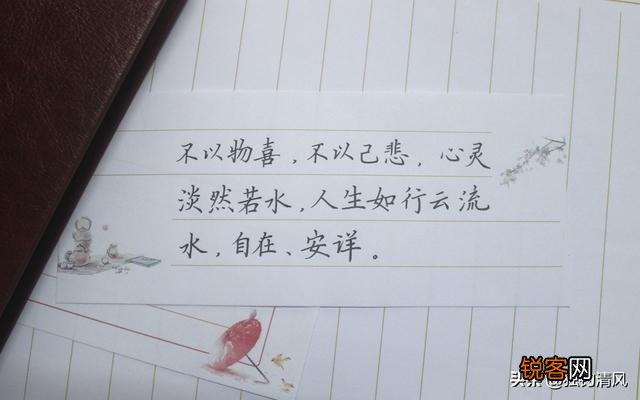 不以物喜，不以己悲，心灵
淡然若水，人生如行云流
水，自在、安详。
锐客网